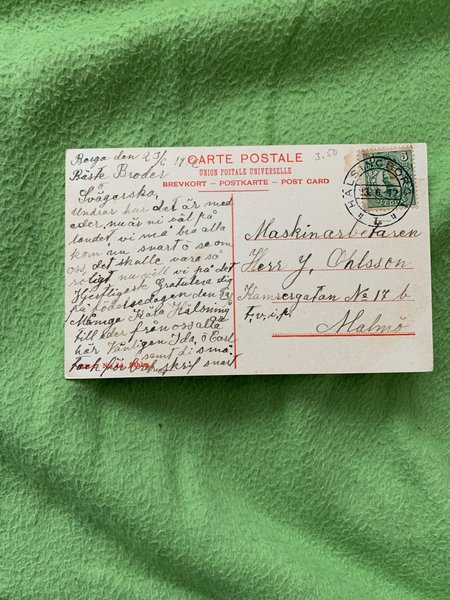 Berga den 23/6 19
CARTE POSTALE
3.50
UNION POSTALE UNIVERSELLE
BREVKORT – POSTKARTE – POST CARD
Bäste Broder
Svägerska,
Undrar hur det är med
eder, nu är ni väl på
landet, vi må bra alla
kom nu snart o se om
oss det skulle vara så
roligt nu vill vi på det
Gratulera dig
på födelsedagen den 23/
Många Hälsning
till eder från oss alla
här Vänligen Ida, o Carl
samt di små
tack för skrif snart
HÄLSINGBORG
5
Maskinarbetaren
Herr Y. Ohlsson
Kamrergatan No 17 b
t.v.i.p.
Malmö